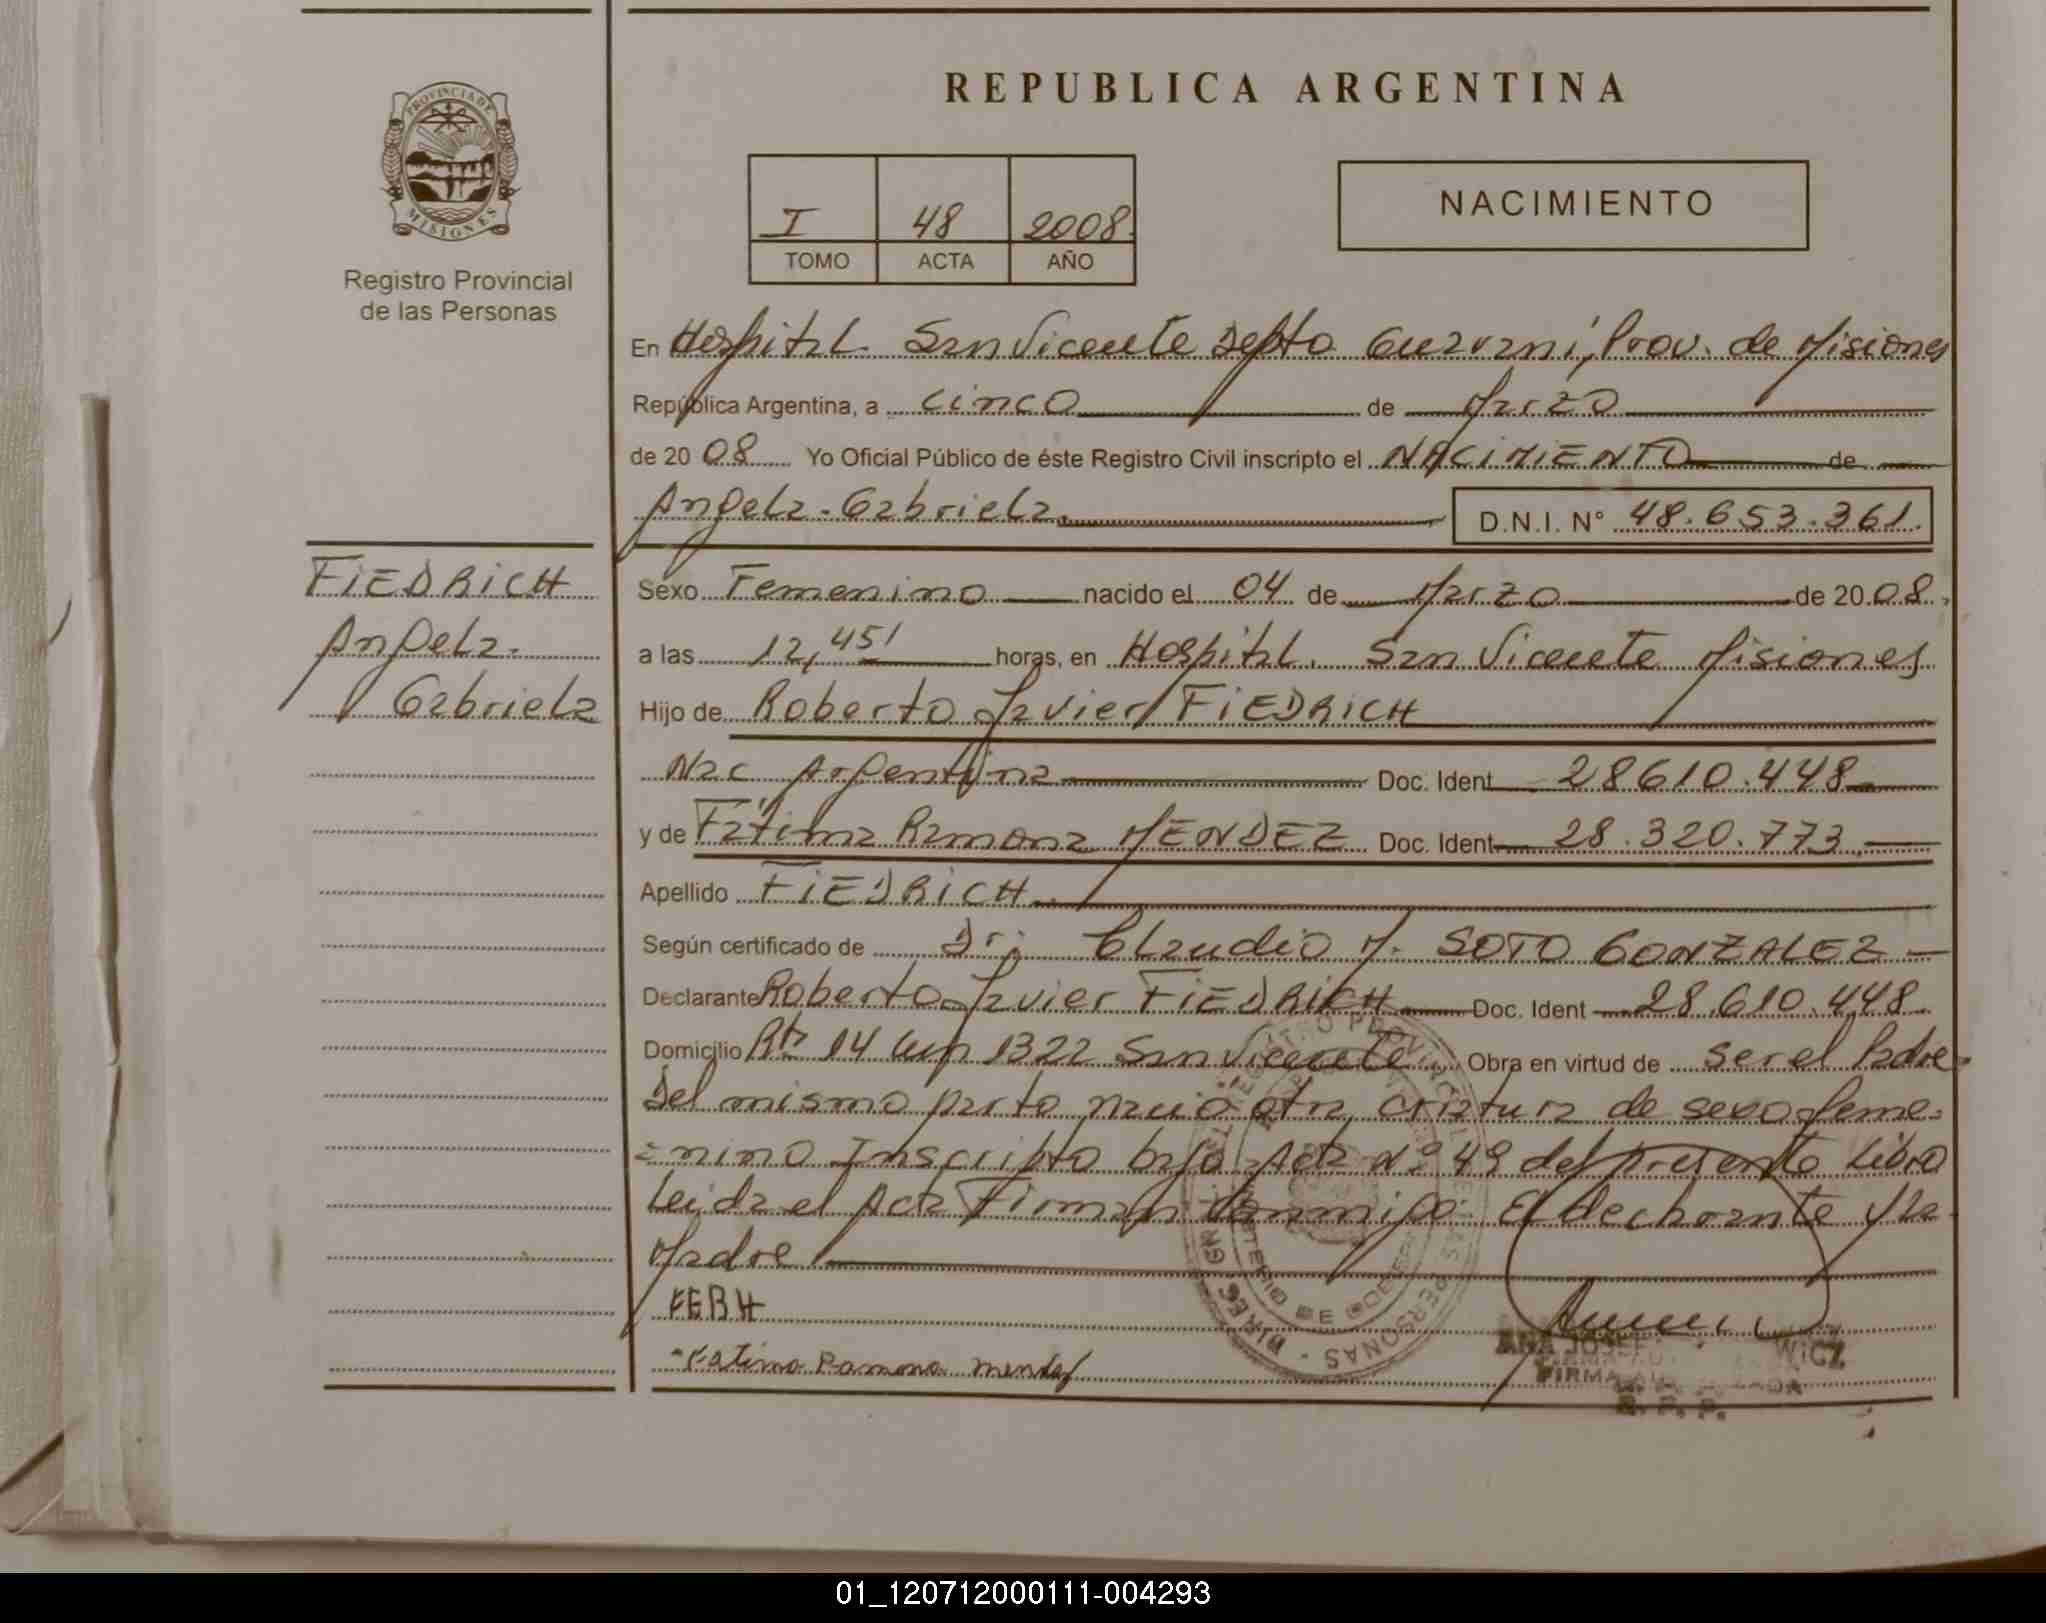 REPUBLICA ARGENTINA
PROVINCIA DE
MISIONES
Registro Provincial
de las Personas
I 48 2008
TOMO ACTA AÑO
NACIMIENTO
En Hospital San Vicente Depto Guaraní, Prov. de Misiones
República Argentina, a cinco de Marzo
de 2008 Yo Oficial Público de éste Registro Civil inscripto el NACIMIENTO de
Angela Gabriela D.N.I. N° 48.653.361.
FIEDRICH
Angela
Gabriela
Sexo Femenino nacido el 04 de Marzo de 2008.
a las 12,45' horas, en Hospital San Vicente Misiones
Hijo de Roberto Javier FIEDRICH
Nac Argentina Doc. Ident 28610.448
y de Fátima Ramona MENDEZ Doc. Ident 28.320.773
Apellido FIEDRICH
Según certificado de Dr. Claudio M. SOTO GONZALEZ
Declarante Roberto Javier FIEDRICH Doc. Ident 28.610.448
Domicilio Rta 14 1322 San Vicente Obra en virtud de ser el Padre
Del mismo parto nació otra criatura de sexo feme=
=nino Inscripto bajo Acta Nº 49 del presente Libro
Leida el Acta Firman Conmigo El declarante y la
Madre
Fatima Ramona Mendez
ANA WICZ
FIRMA
R. P. P.
01_120712000111-004293